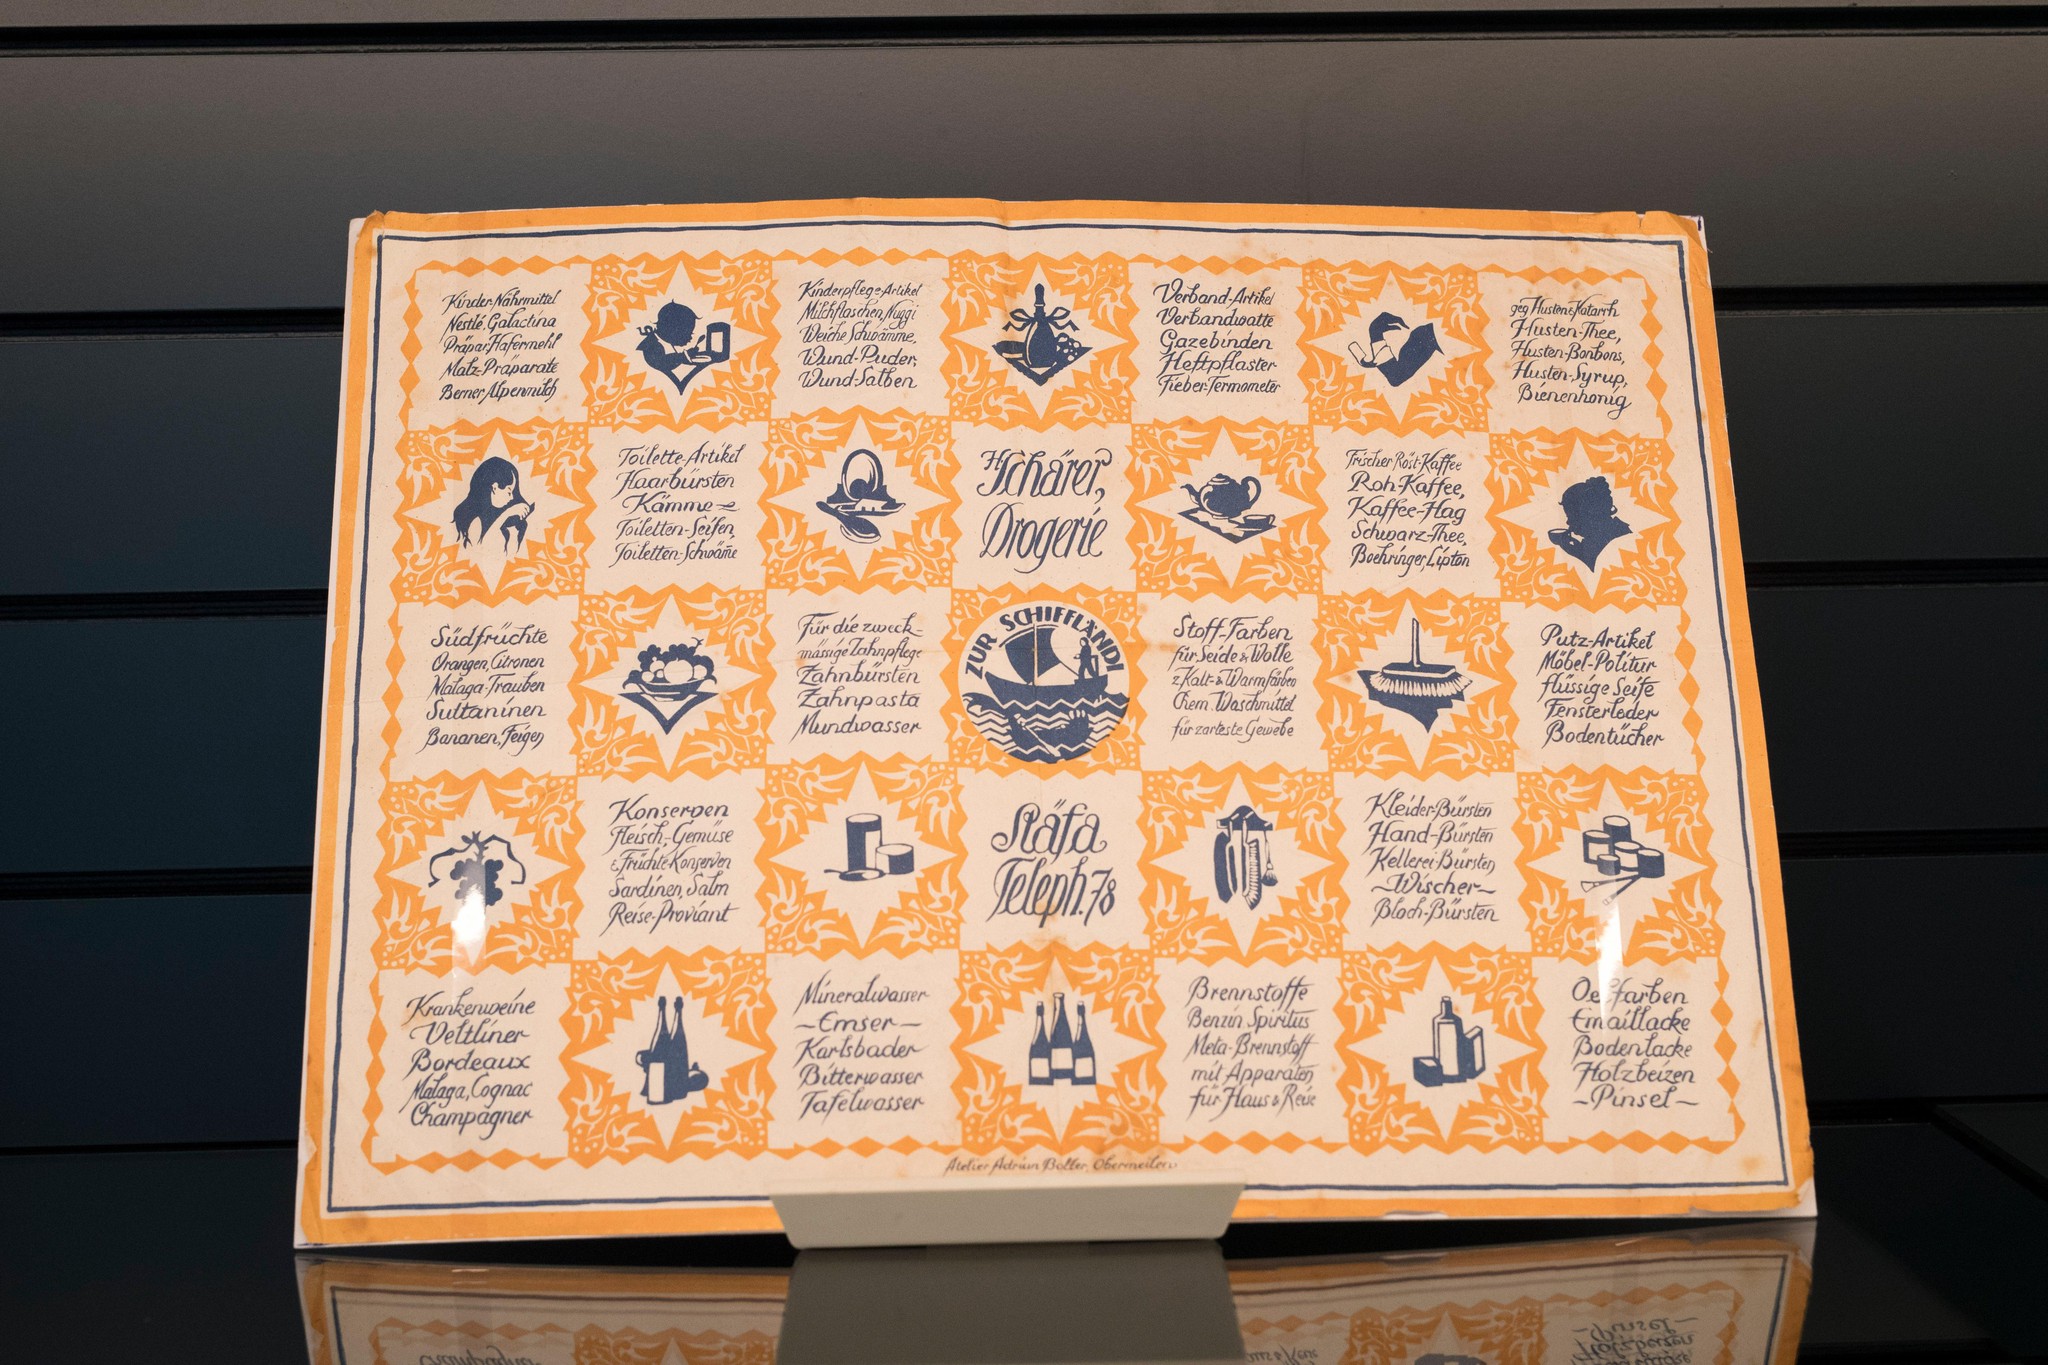 Kinder-Nährmittel
Nestlé, Galactina
Präpar. Hafermehl
Malz-Präparate
Berner Alpenmilch
Kinderpflege-Artikel
Milchflaschen, Nuggi
Weiche Schwämme,
Wund-Puder,
Wund-Salben
Verband-Artikel
Verbandwatte
Gazebinden
Heftpflaster
Fieber-Termometer
geg Husten & Katarrh
Husten-Thee,
Husten-Bonbons,
Husten-Syrup,
Bienenhonig
Toilette-Artikel
Haarbürsten
Kämme
Toiletten-Seifen,
Toiletten-Schwäm̄e
H. Schärer,
Drogerie
Frischer Röst-Kaffee
Roh-Kaffee,
Kaffee-Hag
Schwarz-Thee,
Boehringer, Lipton
Südfrüchte
Orangen, Citronen
Malaga-Trauben
Sultaninen
Bananen, Feigen
Für die zweck-
mässige Zahnpflege
Zahnbürsten
Zahnpasta
Mundwasser
ZUR SCHIFFLÄNDI
Stoff-Farben
für Seide & Wolle
z Kalt- & Warmfärben
Chem. Waschmittel
für zarteste Gewebe
Putz-Artikel
Möbel-Politur
flüssige Seife
Fensterleder
Bodentücher
Konserven
Fleisch-, Gemüse
& Früchte-Konserven
Sardinen, Salm
Reise-Proviant
Stäfa
Teleph. 78
Kleider-Bürsten
Hand-Bürsten
Kellerei-Bürsten
-Wischer-
Bloch-Bürsten
Krankenweine
Veltliner
Bordeaux
Malaga, Cognac
Champagner
Mineralwasser
-Emser-
Karlsbader
Bitterwasser
Tafelwasser
Brennstoffe
Benzin Spiritus
Meta-Brennstoff
mit Apparaten
für Haus & Reise
Oelfarben
Emaillacke
Bodenlacke
Holzbeizen
-Pinsel-
Atelier Adrian Boller, Obermeilen